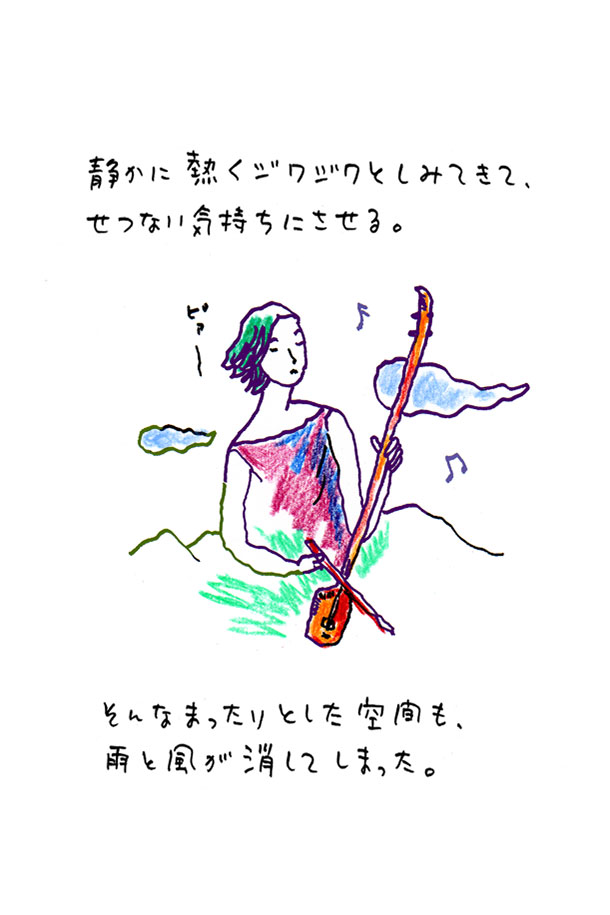 静かに熱くジワジワとしみてきて、
せつない気持ちにさせる。
ピァー
そんなまったりとした空間も、
雨と風が消してしまった。